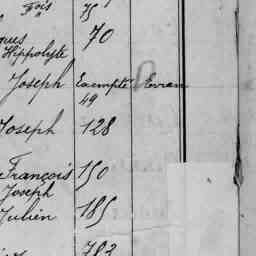 François 75
70
Hippolyte
Joseph Exempté Evran
49
Joseph 128
François 150
Joseph
Julien 185
782